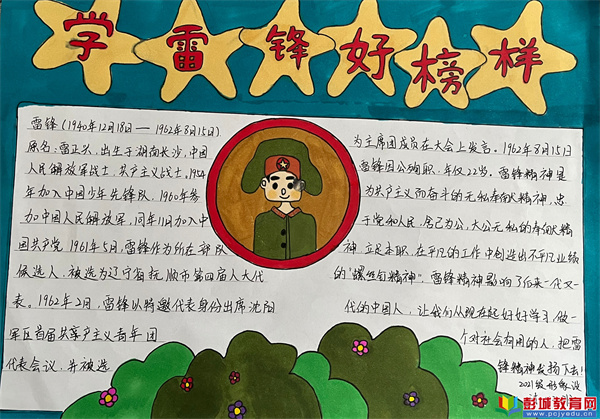 学雷锋好榜样
雷锋(1940年12月18日—1962年8月15日)
原名:雷正兴,出生于湖南长沙,中国
人民解放军战士,共产主义战士,1954
年加入中国少年先锋队,1960年参
加中国人民解放军,同年11月加入中
国共产党1961年5月,雷锋作为所在部队
候选人,被选为辽宁省抚顺市第四届人大代
表。1962年2月,雷锋以特邀代表身份出席沈阳
军区首届共产主义青年团
代表会议,并被选
为主席团成员在大会上发言。1962年8月15日
雷锋因公殉职,年仅22岁。雷锋精神是
为共产主义而奋斗的无私奉献精神,忠
于党和人民、舍己为公、大公无私的奉献精
神,立足本职、在平凡的工作中创造出不平凡业绩
的"螺丝钉精神",雷锋精神影响了后来一代又一
代的中国人,让我们从现在起好好学习,做一
个对社会有用的人,把雷
锋精神发扬下去!
彭城教育网
www.pcjyedu.cn